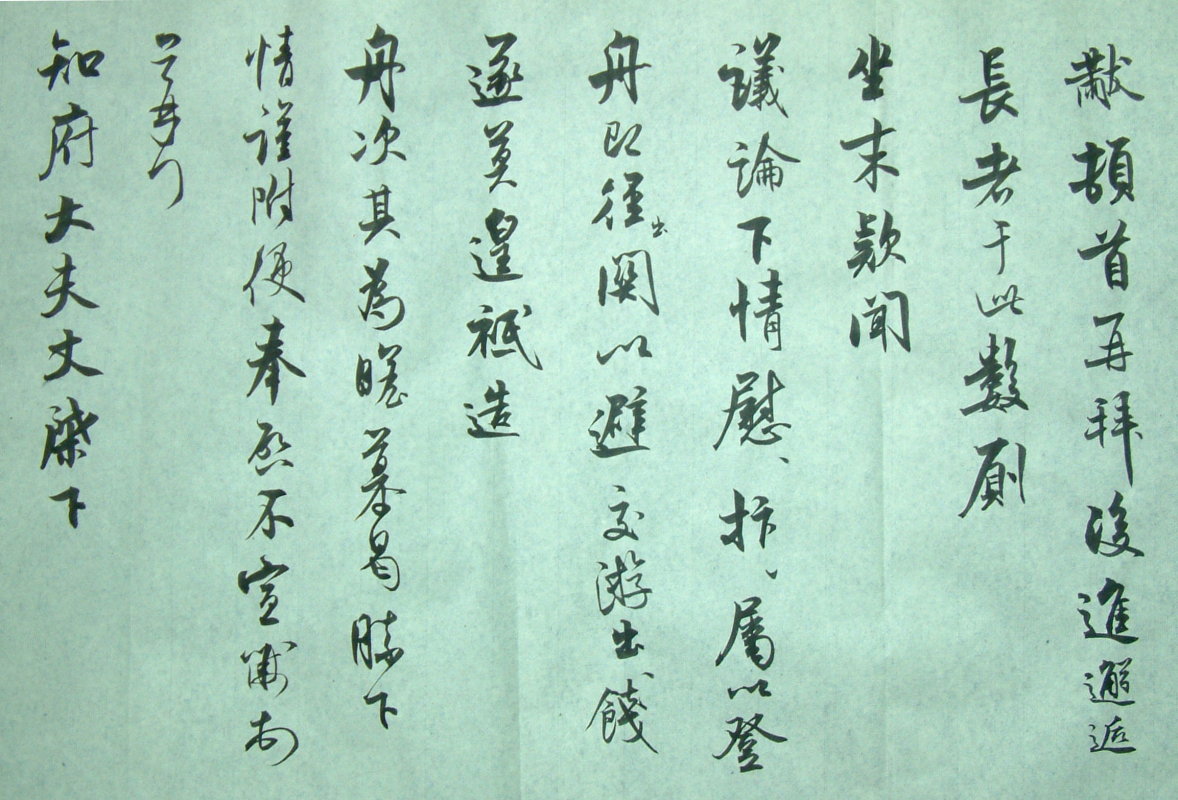 黻頓首再拜後進邂逅
長者于此數廁
坐末欵聞
議論下情慰、抃、屬以登
舟即徑出關以避交游出餞
遂莫遑祗造
舟次其為瞻慕曷勝下
情謹附便奉啓不宣黻頓
首再拜
知府大夫丈棨下